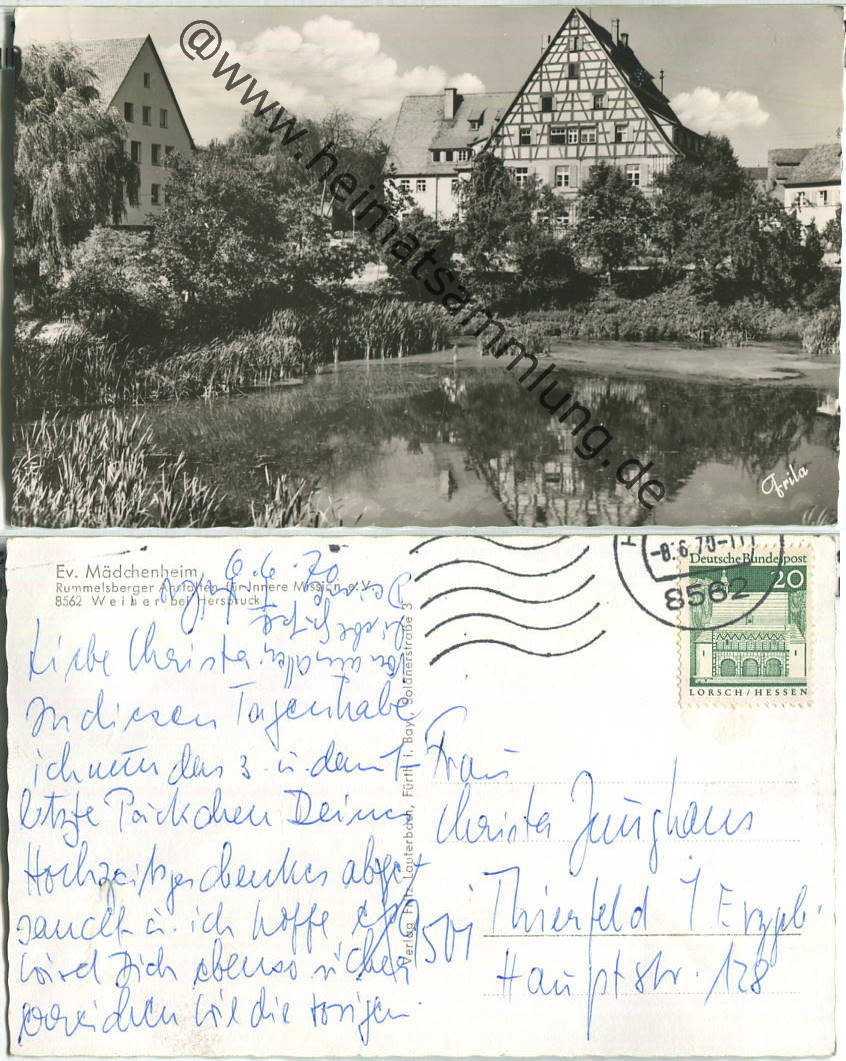 @www.heimatsammlung.de
Frila
Ev. Mädchenheim
Rummelsberger Anstalten für Innere Mission e. V.
8562 Weiher bei Hersbruck
6.6.70
Liebe Christa!
In diesen Tagen habe
ich nun das 3. u. damit
letzte Päckchen Deines
Hochzeitsgeschenkes abge-
sandt u. ich hoffe es
wird Dich ebenso sicher
erreichen wie die vorigen.
Verlag Fritz Lauterbach, Fürth i. Bay., Soldnerstraße 3
-8.6.70-
8562
Deutsche Bundespost
20
LORSCH/HESSEN
Frau
Christa Junghans
9501 Thierfeld / Erzgb.
Hauptstr. 128